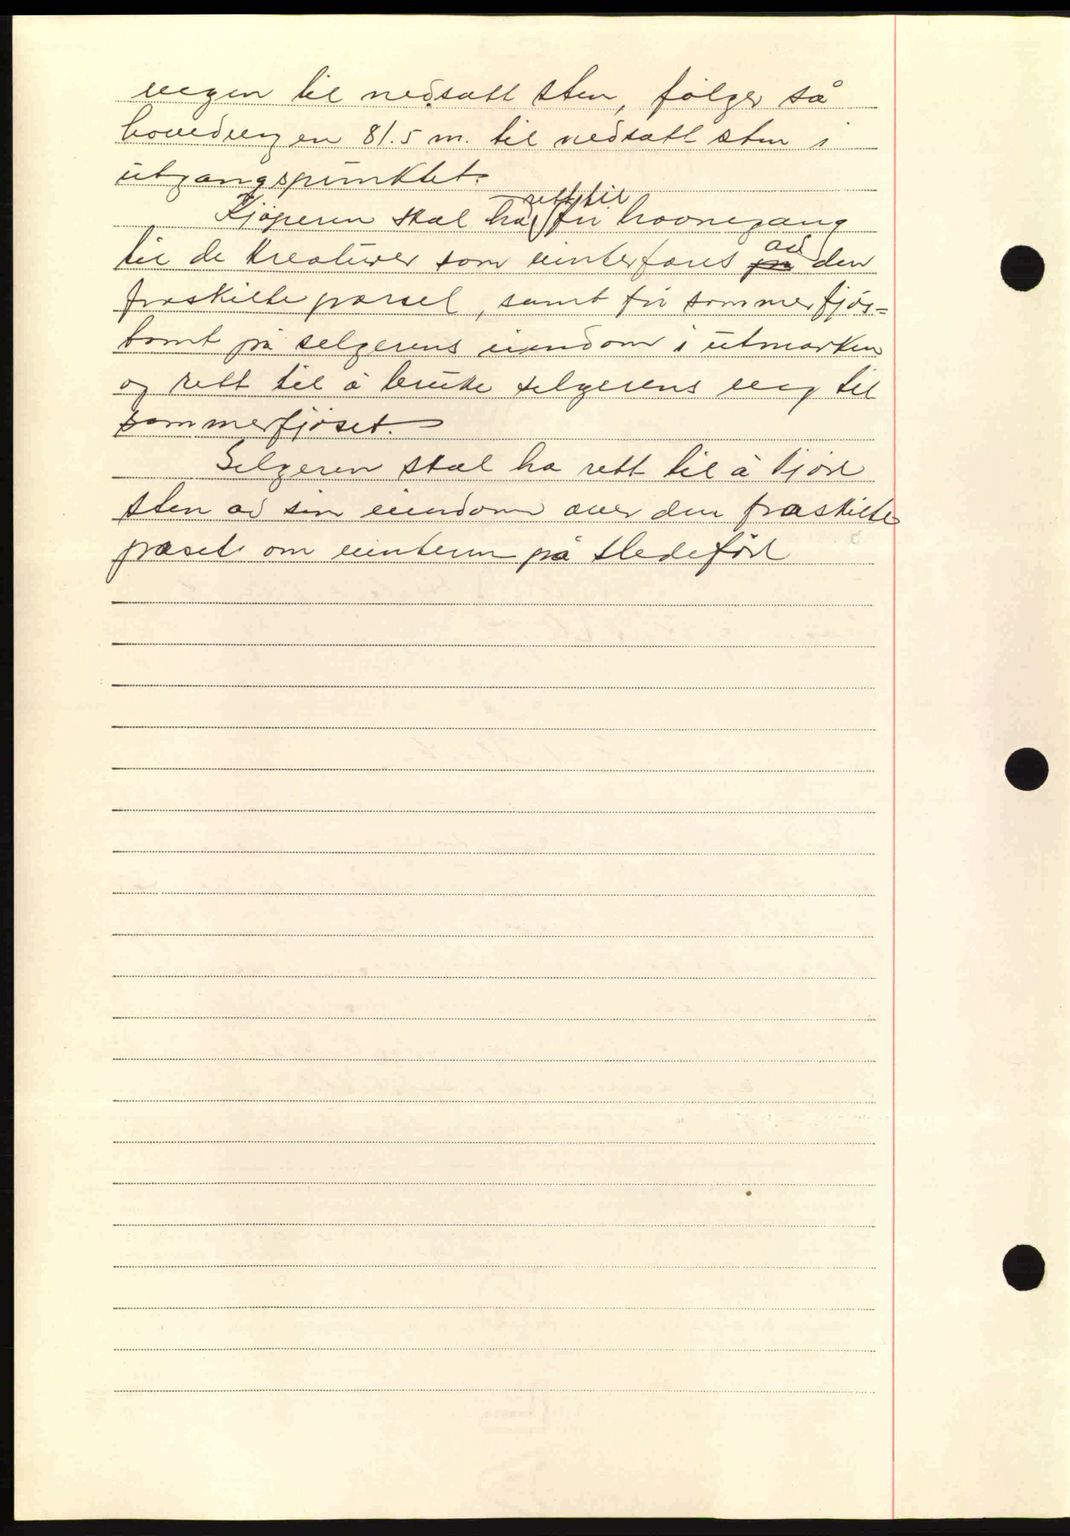 vegen til nedsatt sten, følger så
hovedvegen 81.5 m. til nedsatt sten i
utgangspunktet.
Kjøperen skal ha rett til fri havnegang
til de kreaturer som vinterfores av den
fraskilte parsel, samt fri sommerfjøs=
tomt på selgerens eiendom i utmarken
og rett til å bruke selgerens veg til
sommerfjøset.
Selgeren skal ha rett til å kjøre
sten av sin eiendom over den fraskilte
om vinteren på sledeføre